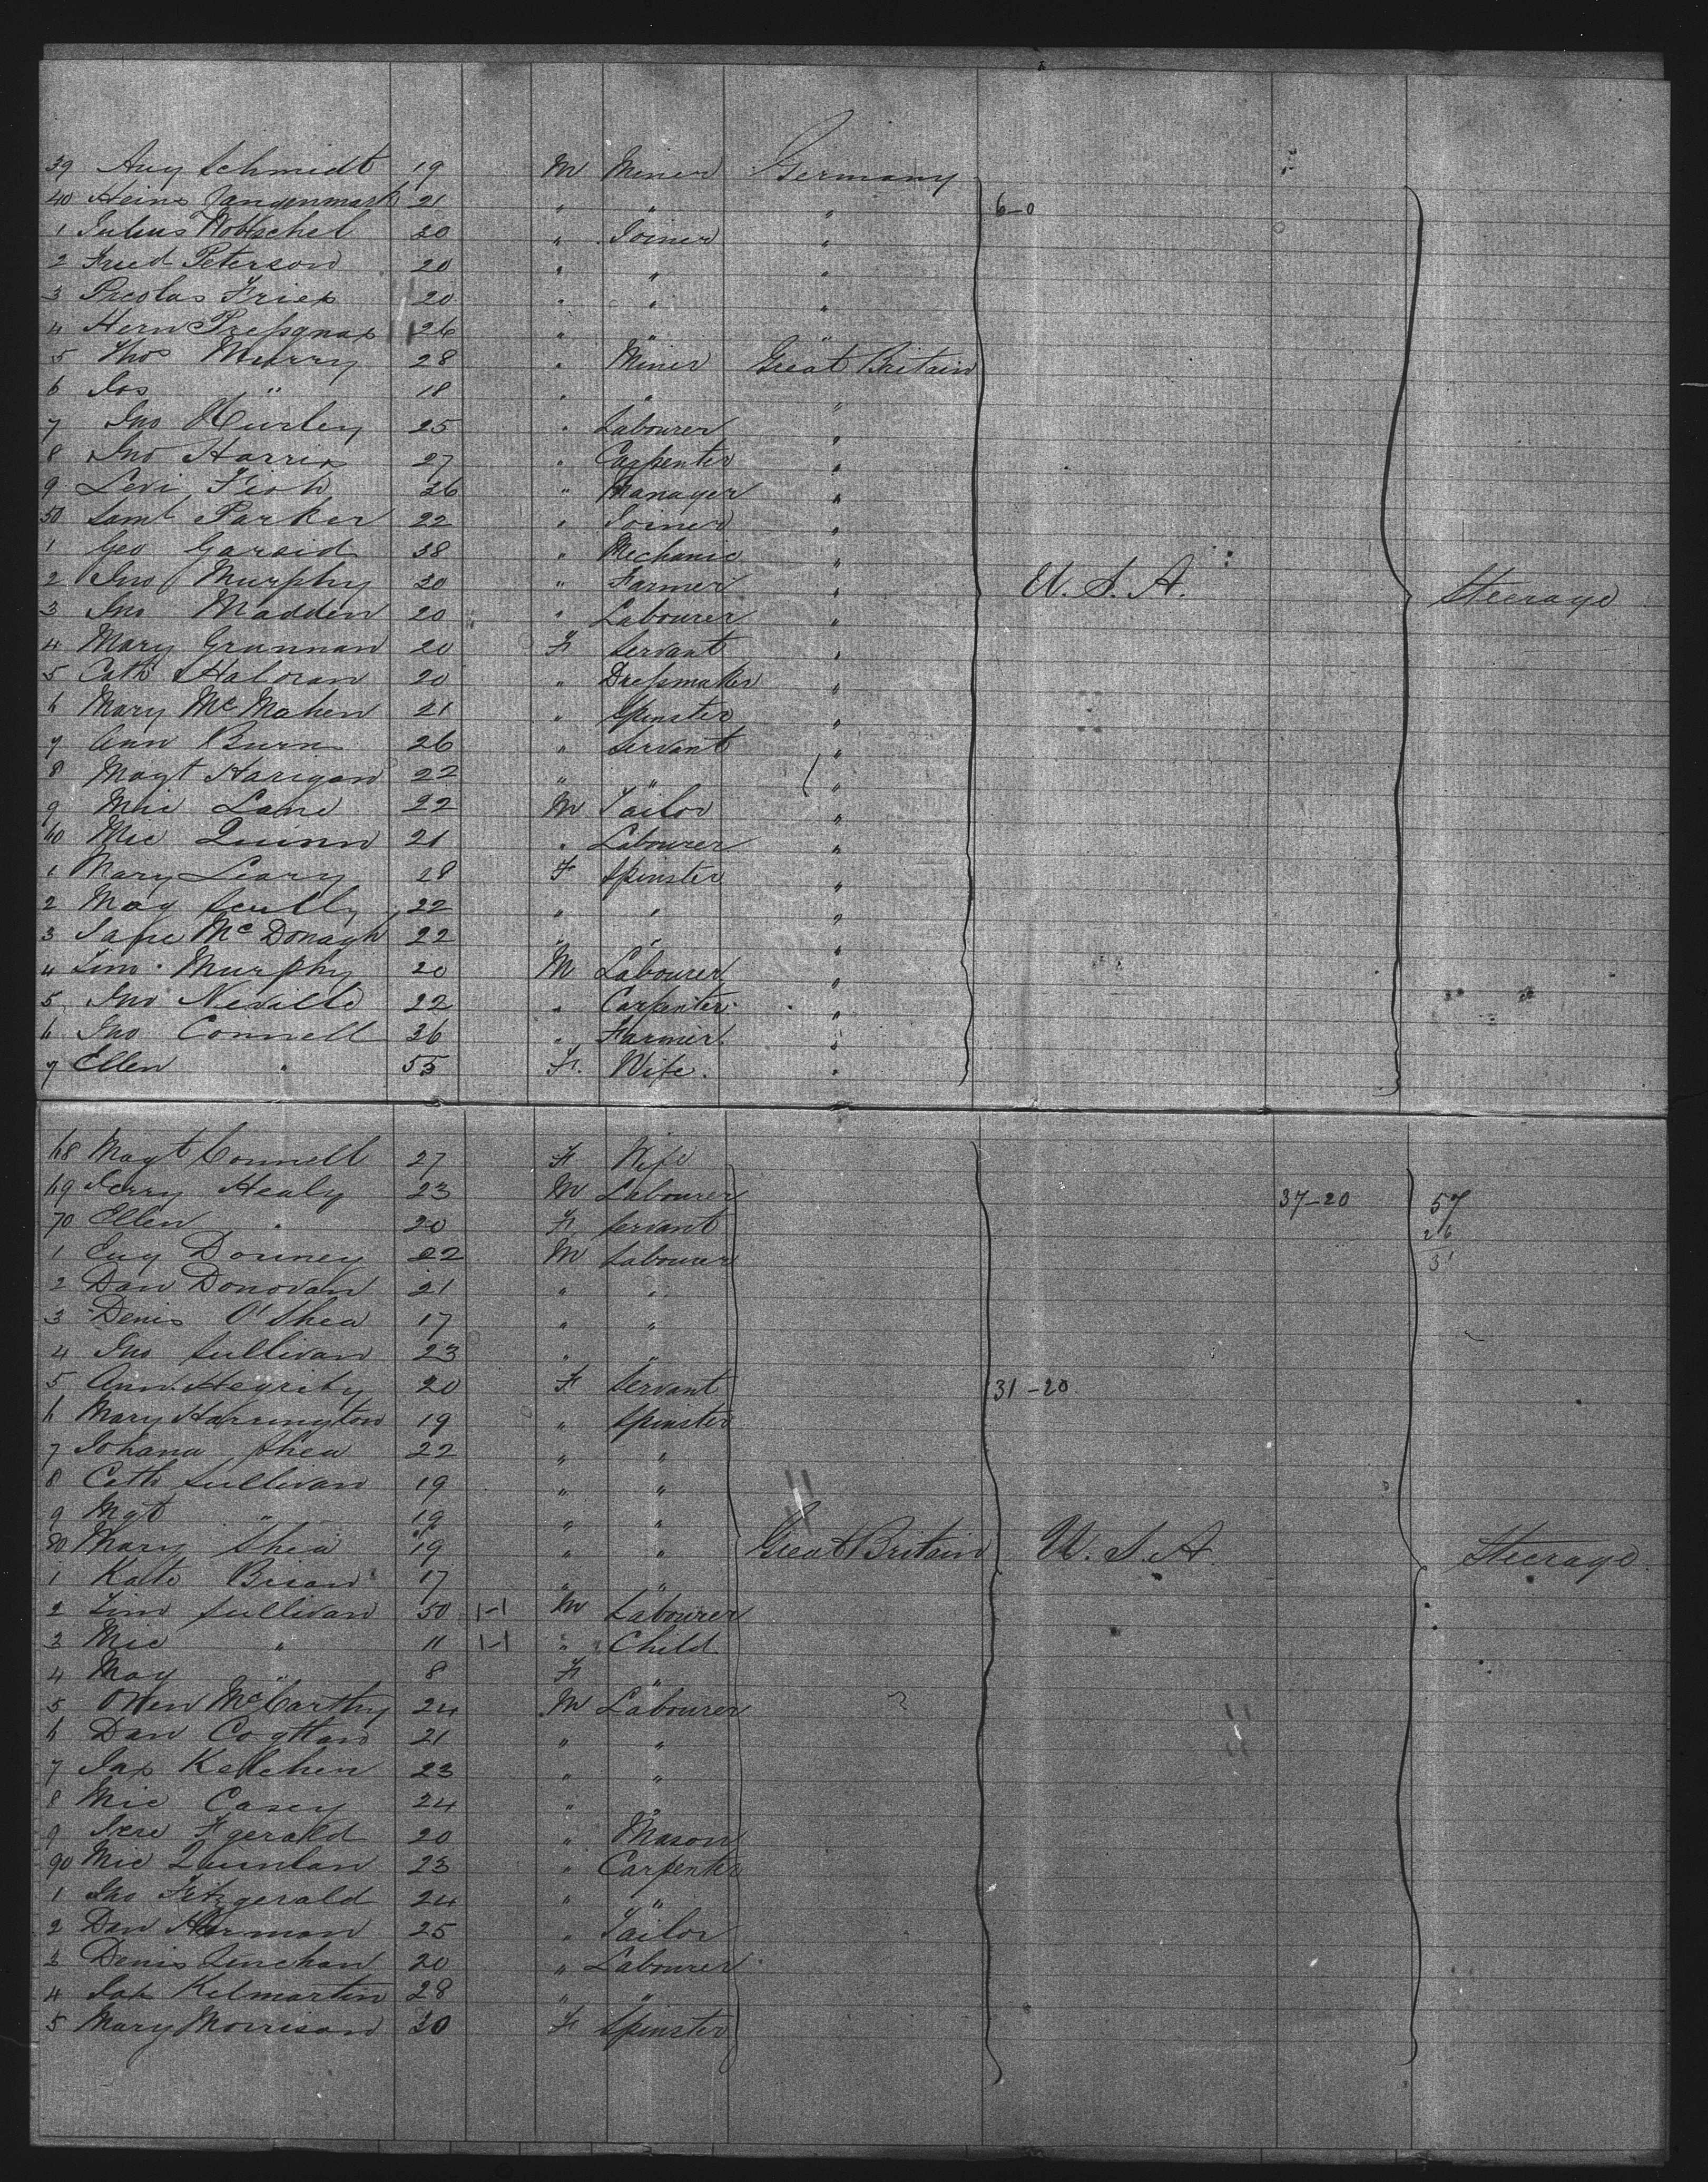 39 Aug Schmidt 19 M Miner Germany
40 Heinr 21 " " " 6-0
1 Julius 30 " Joiner "
2 Fried Peterson 20 " " "
3 20 " " "
4 Hern 26 " " "
5 Thos Murry 28 " Miner Great Britain
6 Jos " 18 " " "
7 Jno Hurley 25 " Labourer "
8 Jno Harris 27 " Carpenter "
9 Levi Fish 36 " Manager "
50 Saml Parker 22 " Joiner "
1 Geo Garsid 38 " Mechanic "
2 Jno Murphy 30 " Farmer " U. S. A. Steerage
3 Jno Madden 20 " Labourer "
4 Mary Grannan 20 F Servant "
5 Cath Haloran 20 " Dressmaker "
6 Mary McMahen 21 " Spinster "
7 Ann Burn 26 " Servant "
8 Magt Harigan 22 " " "
9 Mic Lane 22 M Tailor "
60 Mic Quinn 21 " Labourer "
1 Mary Leary 28 F Spinster "
2 Mag Scully 22 " " "
3 Jane McDonagh 22 " " "
4 Tim Murphy 20 M Labourer "
5 Jno Neville 22 " Carpenter "
6 Jno Connell 36 " Farmer "
7 Ellen " 55 F. Wife. "
68 Magt Connell 27 F Wife
69 Jerry Healy 23 M Labourer 37-20 57
70 Ellen " 20 F Servant 26
1 Eug Downey 22 M Labourer 31
2 Dan Donovan 21 " "
3 Denis O'Shea 17 " "
4 Jno Sullivan 23 " "
5 Ann Hegrity 20 F Servant 31-20
6 Mary Harrington 19 " Spinster
7 Johana Shea 22 " "
8 Cath Sullivan 19 " "
9 Mgt " 19 " "
80 Mary Shea 19 " " Great Britain U. S. A. Steerage
1 Kate Brian 17 " "
2 Tim Sullivan 50 1-1 M Labourer
3 Mic " 11 1-1 " Child
4 May " 8 F "
5 Owen McCarthy 24 M Labourer
6 Dan 21 " "
7 Jas Kellehen 23 " "
8 Mic Casey 24 " "
9 Jere Fgerald 20 " Mason
90 Mic Quinlan 23 " Carpenter
1 Jno Fitzgerald 24 " "
2 Dan 25 " Tailor
3 Denis Linehan 20 " Labourer
4 Jas Kilmartin 28 " "
5 Mary Morrison 30 F Spinster